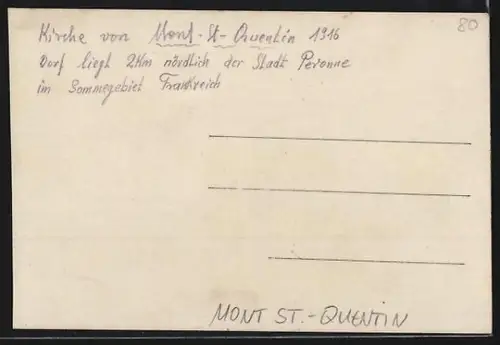 Kirche von Mont-St-Quentin 1916
Dorf liegt 2Km nördlich der Stadt Peronne
im Sommegebiet Frankreich
80
MONT ST.-QUENTIN